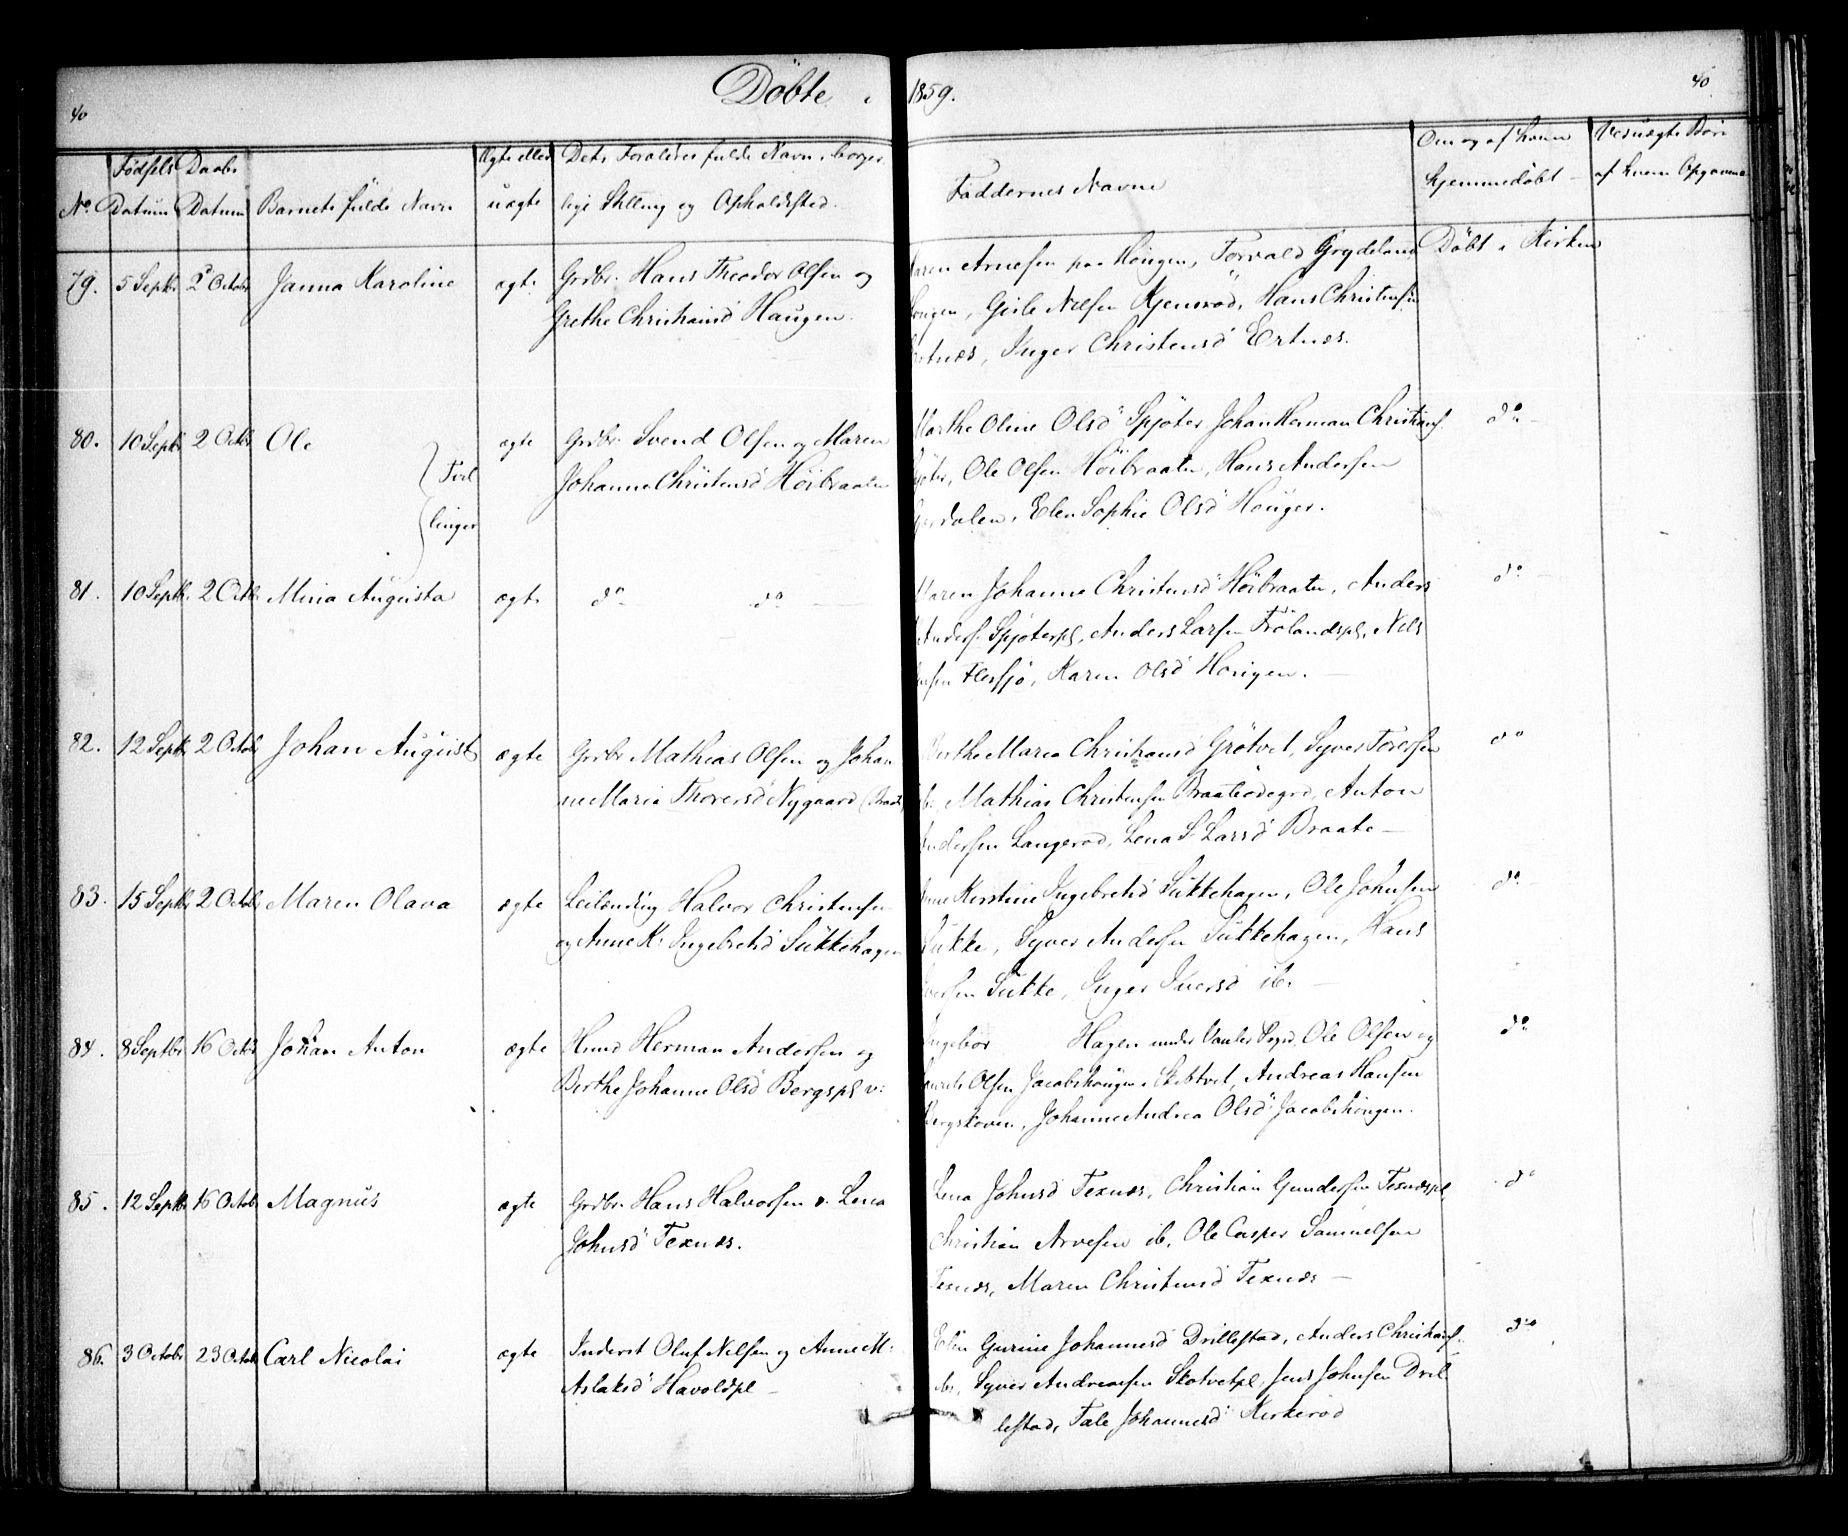 Döbte i 1859.
40
40
No.
Födsels Datum
Daabs Datum
Barnets fulde Navn
Ægte eller uægte
Dets Forældres fulde Navn, borger
lige Stilling og Opholdsted.
Faddernes Navne
Om og af hvem
hjemmedöbt
Ved uægte Börn
af hvem Opgavne
79. 5 Septbr 2 Octobr Janna Karoline ægte Grdbr. Hans Theodor Olsen og
Grethe Christiansd Haugen.
Maren Arnesen paa Haugen, Torvald Grydeland
Haugen, Gisle Nelsen Kjensröd, Hans Christensen
Ertnæs, Inger Christensd Ertnæs.
Döbt i Kirken
80. 10 Septbr 2 Octbr Ole ægte Grdbr. Svend Olsen og Maren
Johanne Christensd Höibraaten
Tvil
linger
Marthe Oline Olsd Spjöter, Johan Herman Christians.
Spjöter, Ole Olsen Höibraaten, Hans Andersen
dalen, Elen Sophie Olsd Hauger.
do
81. 10 Septbr. 2 Octbr Mina Augusta ægte do do
Maren Johanne Christensd Höibraaten, Anders
Anders. Spjöterpl, Anders Larsen Frölandspl, Nils
Flessjö, Karen Olsd Haugen.
do
82. 12 Septbr 2 Octobr Johan August ægte Grdbr Mathias Olsen og Johan
ne Maria Thoresd Nygaard (Braate)
Berthe Maria Christiansd Grötvet, Syver Toresen
ib., Mathias Christensen Braatiödegrd, Anton
Andersen Langeröd, Lena S. Larsd Braate
do
83. 15 Septbr 2 Octobr Maren Olava ægte Leilænding Halvor Christensen
og Anne K. Ingebretsd Sukkehagen
Anne Kirstine Ingebretsd Sukkehagen, Ole Johnsen
Sukke, Syver Andersen Sukkehagen, Hans
Iversen Sukke, Inger Iversd ib.
do
84. 8 Septbr 16 Octbr Johan Anton ægte Husmd Herman Andersen og
Berthe Johanne Olsd Bergspl v:
Ingebor Hagen under Vanler Sogn, Ole Olsen og
Laurits Olsen Jacobshaugen i Skibtvet, Andreas Hansen
Bergskoven, Johanne Andrea Olsd Jacobshaugen.
do
85. 12 Septbr 16 Octobr Magnus ægte Grdbr. Hans Halvorsen o. Lena
Johnsd Texnæs.
Lena Johnsd Texnæs, Christian Gundersen Texnæspl
Christian Arvesen ib, Ole Casper Samuelsen
Texnæs, Maren Christensd Texnæs
do
86. 3 Octobr 23 Octobr Carl Nicolai ægte Inderst Oluf Nelsen og Anne M:
Aslaksd Havoldpl
Elin Gurine Johannesd Drillestad, Anders Christians.
ibs, Syver Andreasen Skotvetpl, Jens Johnsen Dril
lestad, Tale Johannesd Kirkeröd
do